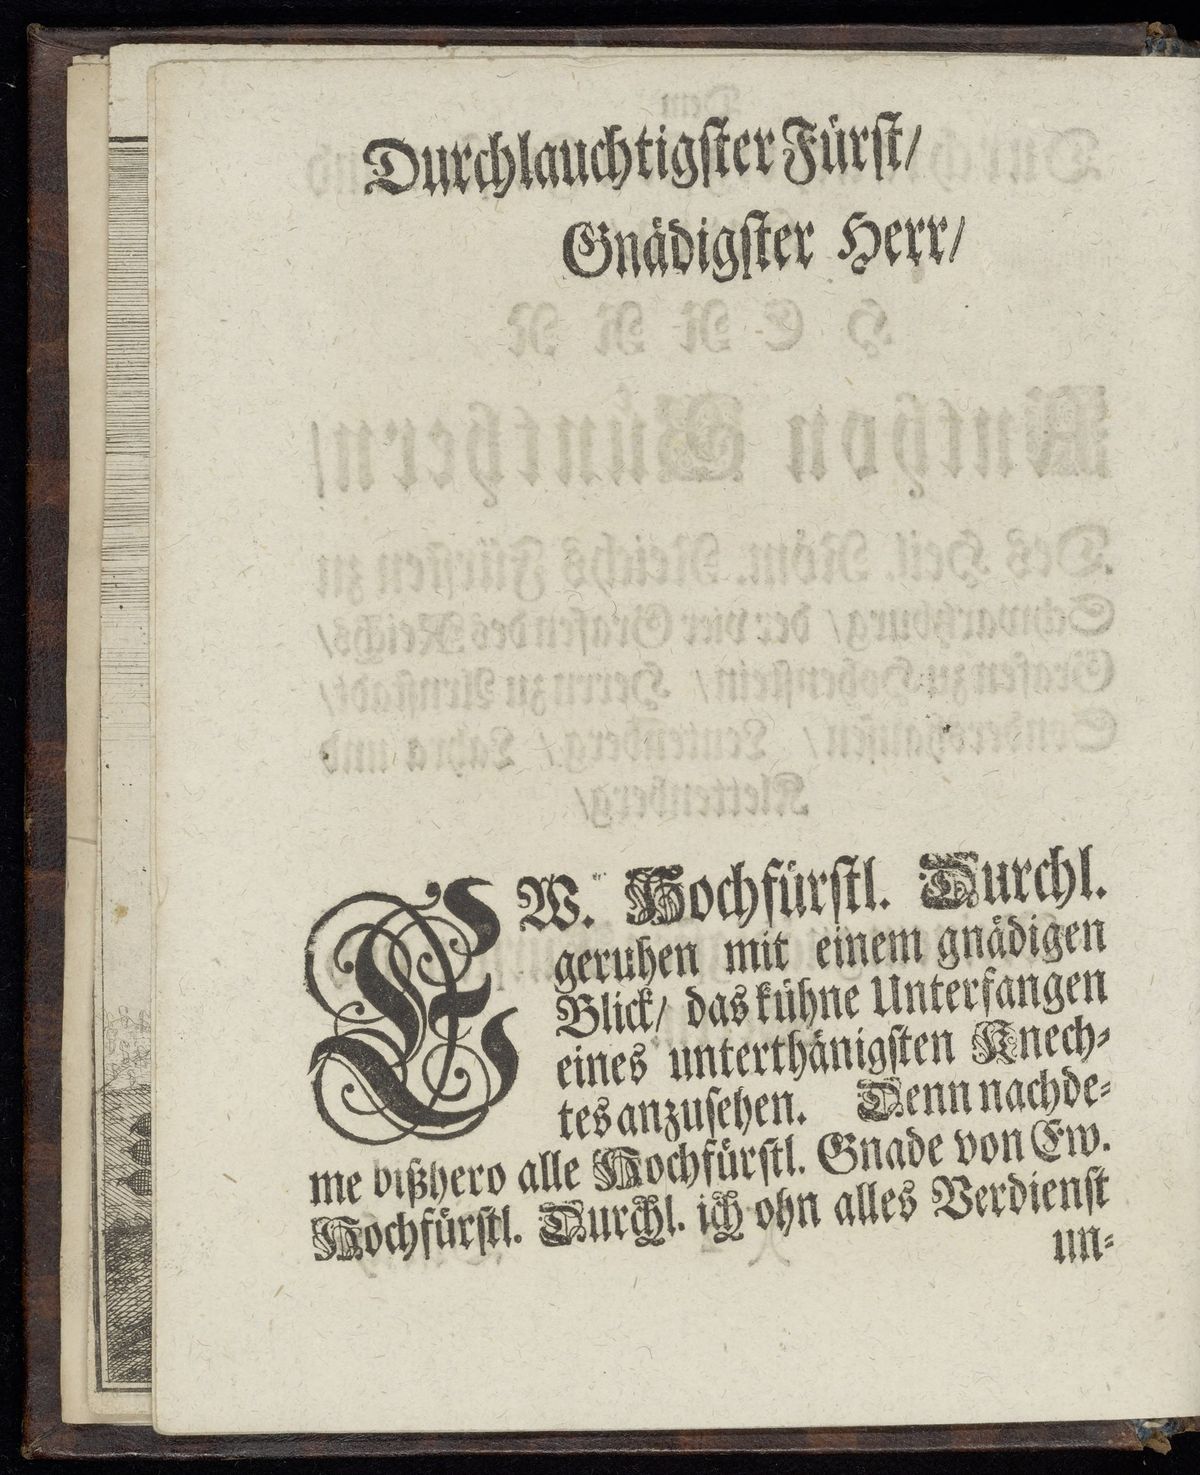 Durchlauchtigster Fürst/
Gnädigster Herr/
EW. Hochfürstl. Durchl.
geruhen mit einem gnädigen
Blick/ das kühne Unterfangen
eines unterthänigsten Knech-
tes anzusehen. Denn nachde-
me bißhero alle Hochfürstl. Gnade von Ew.
Hochfürstl. Durchl. ich ohn alles Verdienst
un-